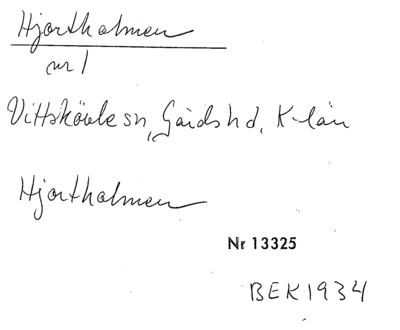 Hjortholmen
nr 1
Vittskövle sn, Gärds hd, K-län
Hjortholmen
Nr 13325
BEK1934